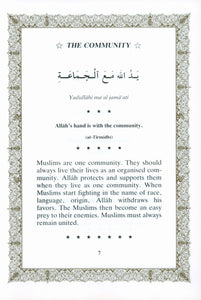 THE COMMUNITY
يَدُ اللهِ مَعَ الْجَمَاعَةِ
Yadullāhi ma al jamā'ati
Allāh's hand is with the community.
(at-Tirmidhi)
Muslims are one community. They should
always live their lives as an organised com-
munity. Allāh protects and supports them
when they live as one community. When
Muslims start fighting in the name of race,
language, origin, Allāh withdraws his
favors. The Muslims then become an easy
prey to their enemies. Muslims must always
remain united.
7